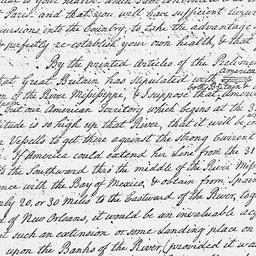 to your health, which I now
t Paris, and that you will have sufficient
cursions into the Country, to take the advantage
perfectly re-establish your own health, & that
By the printed Articles of the Prelimin
that Great Britain has stipulated with America
both Britain &
on of the River Mississippi, & I suppose that America
but our American Territory which begins at
titude is so high up that River, that it will be
Vessells to get there against the strong Current
If America could extend her Line from the 31
to the Southward thro the middle of the River
me with the Bay of Mexico, & obtain from Spain
nly 20, or 30 Miles to the Eastward of the River, tog
d of New Orleans, it would be an invaluable acq
t such an extension or some Landing place on
upon the Banks of the River, (provided it was